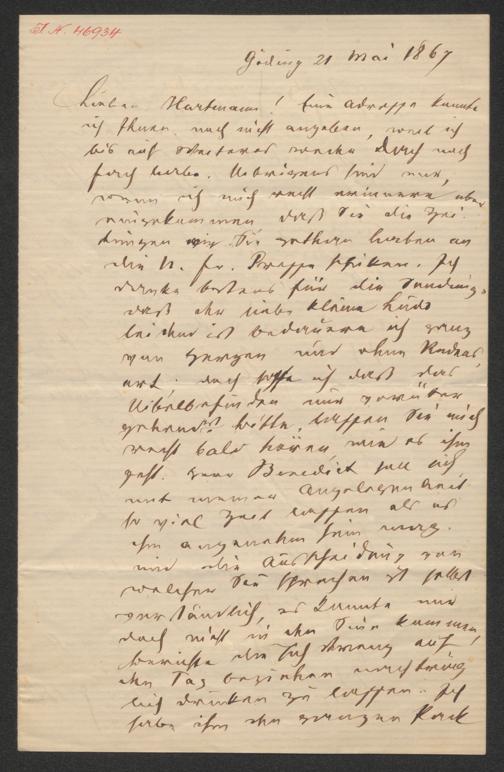 I. N. 46934
Göding 21 Mai 1867
Lieber Hartmann! Eine Adresse konnte
ich Ihnen noch nicht angeben, weil ich
bis auf Weiteres weder Dach noch
Fach habe. Übrigens sind wir,
wenn ich mich recht erinnere über
eingekommen daß Sie die Zei-
tungen wie Sie gethan haben an
die N. fr. Presse schicken. Ich
danke bestens für die Sendung.
daß der liebe kleine Ludo
leidend ist bedauere ich ganz
von Herzen und ohne Redens
art. doch hoffe ich daß das
Uibelbefinden nur vorüber
gehend ist. bitte, lassen Sie mich
recht bald hören, wie es ihm
geht. Herr Benedict soll sich
mit meiner Angelegenheit
so viel Zeit lassen als es
ihm angenehm sein mag.
und die Ausscheidung von
welcher Sie sprechen ist selbst
verständlich, es konnte mir
doch nicht in den Sinn kommen,
Berichte die sich streng auf
den Tag beziehen nachträg
lich drucken zu lassen. Ich
habe ihm den ganzen Pack